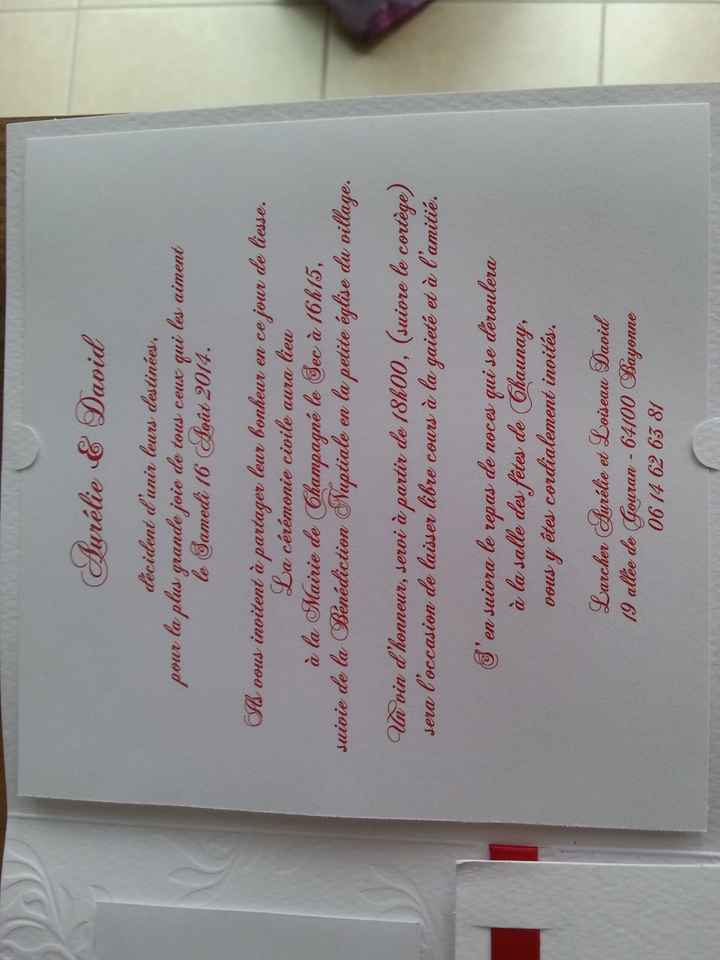 Aurélie & David
décident d'unir leurs destinées,
pour la plus grande joie de tous ceux qui les aiment
le Samedi 16 Août 2014.
Ils vous invitent à partager leur bonheur en ce jour de liesse.
La cérémonie civile aura lieu
à la Mairie de Champagné le Sec à 16h15,
suivie de la Bénédiction Nuptiale en la petite église du village.
Un vin d'honneur, servi à partir de 18h00, (suivre le cortège)
sera l'occasion de laisser libre cours à la gaieté et à l'amitié.
S' en suivra le repas de noces qui se déroulera
à la salle des fêtes de Chaunay,
vous y êtes cordialement invités.
Larcher Aurélie et Loiseau David
19 allée de - 64100 Bayonne
06 14 62 63 81